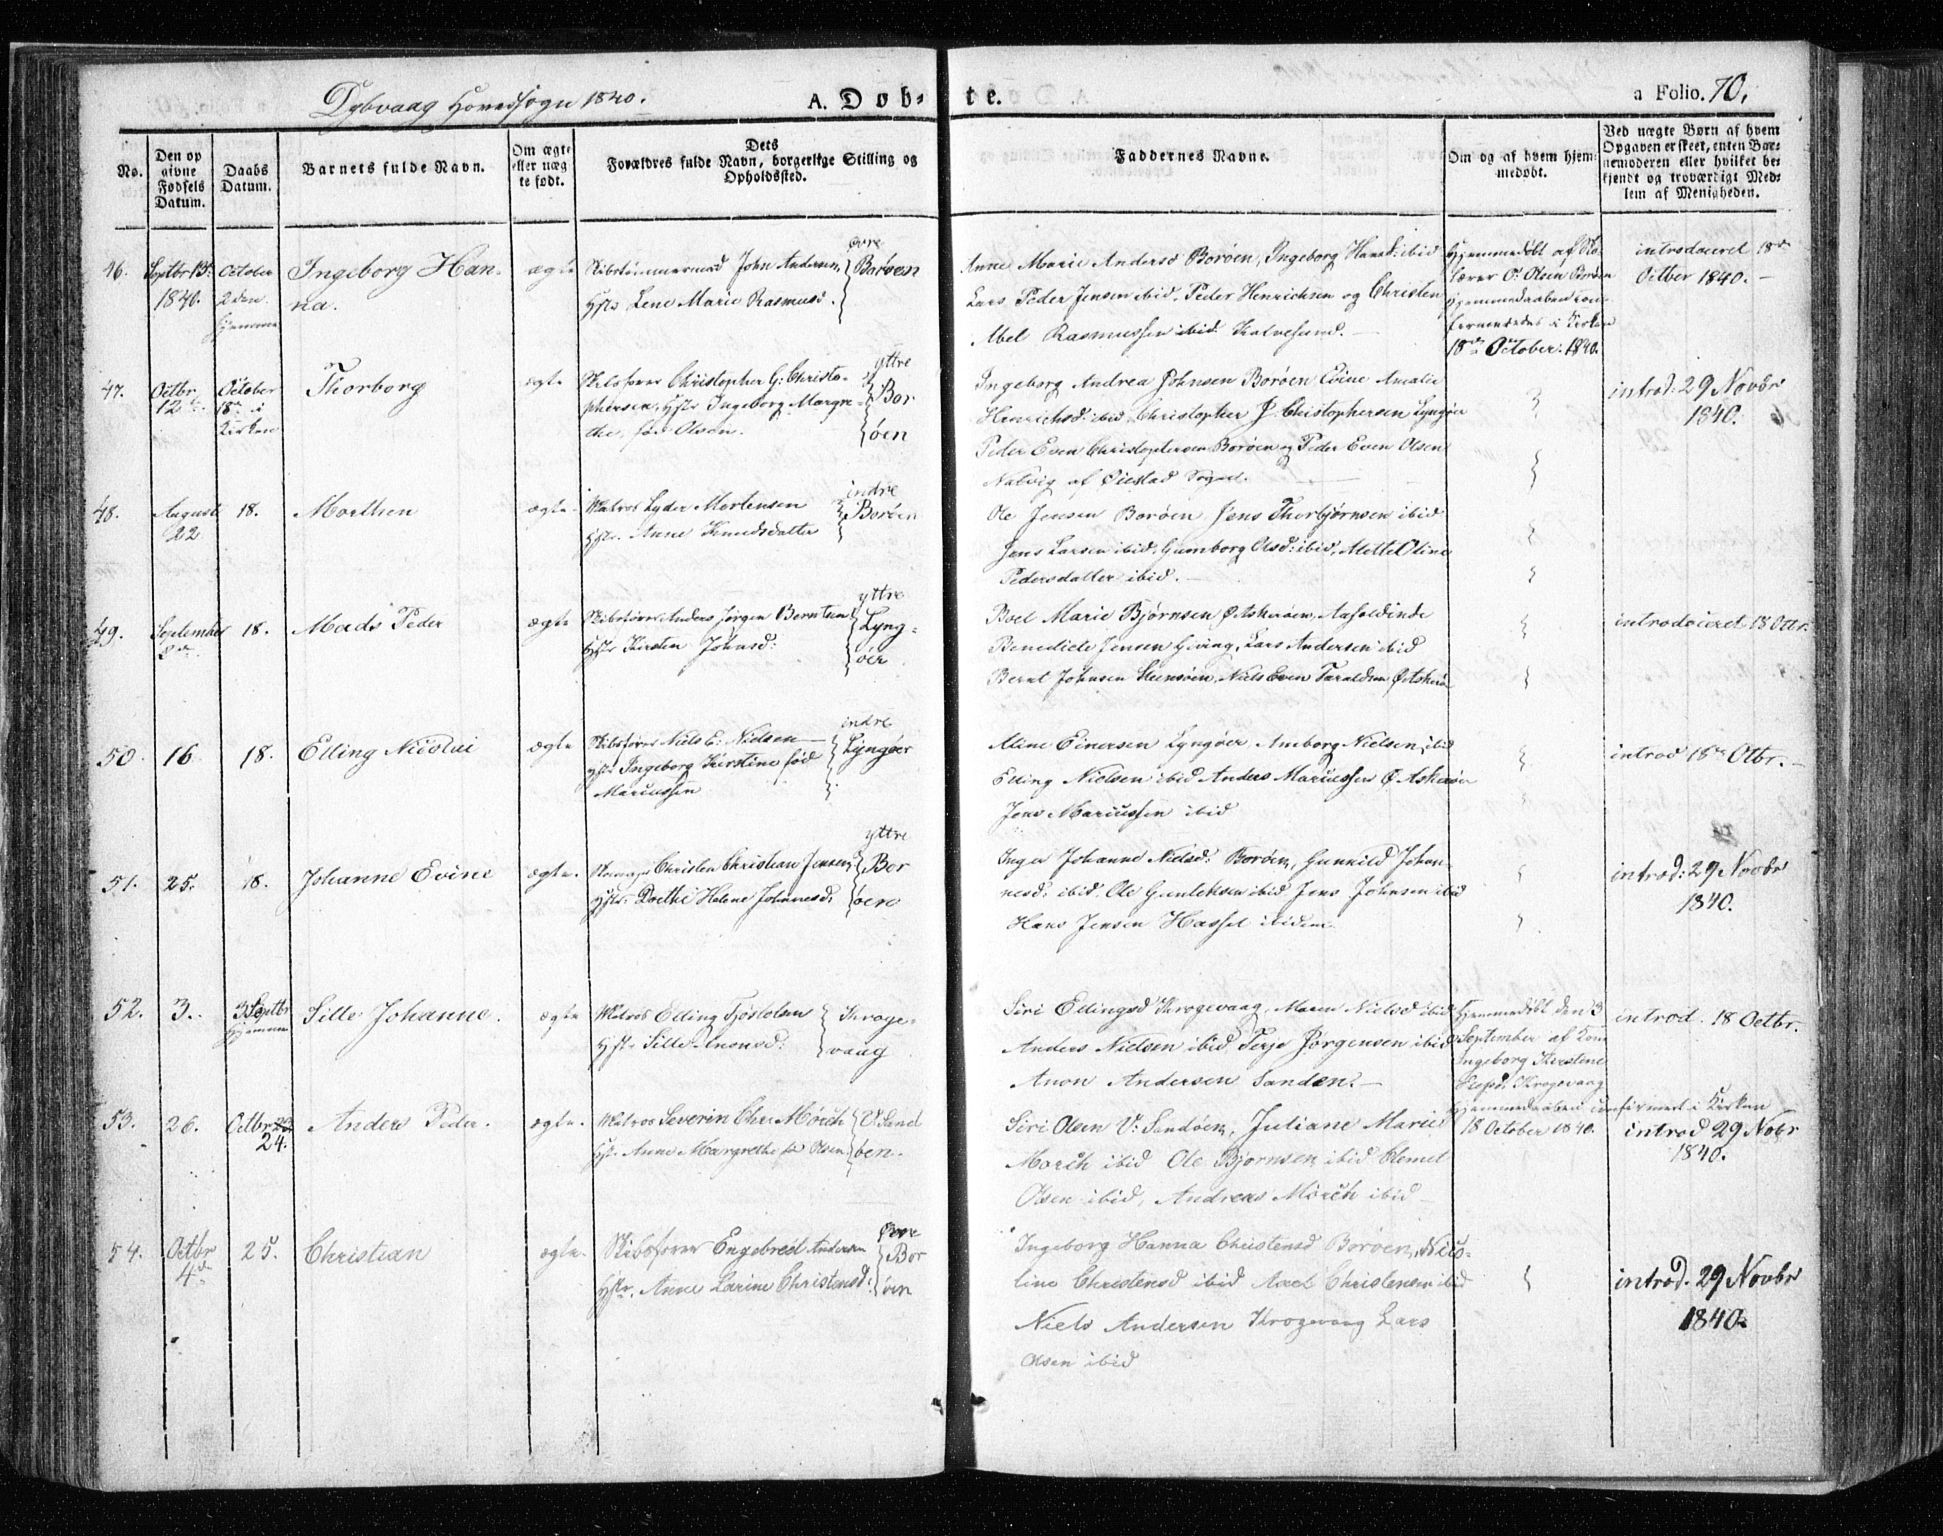 Dybvaag Hovedsogn 1840.
A. Døb-
te.
a Folio. 70.
No.
Den op
givne
Fødsels
Datum.
Daabs
Datum.
Barnets fulde Navn.
Om ægte
eller uæg
te født.
Dets
Forældres fulde Navn, borgerlige Stilling og
Opholdssted.
Faddernes Navne.
Om og af hvem hjem-
medøbt.
Ved uægte Børn af hvem
Opgaven er skeet, enten Bar-
nemoderen eller hvilket be-
kjendt og troværdigt Med-
lem af Menigheden.
46.
Septbr 15.
1840.
October
2den
hjemme
Ingeborg Han-
na.
ægte
Skibstømmermd John Andersen
Hstr Lene Marie Rasmusd.
øvre
Borøen
Anne Marie Andersd Borøen, Ingeborg Hansd: ibid
Lars Peder Jensen ibid. Peder Henrichsen og Christen
Abel Rasmussen ibid Kalvesund.
Hjemmedøbt af
lærer O: Olsen Borøen
Hjemmedaaben con-
fermeredes i Kirken
18de October: 1840.
introduceret 18de
Octber 1840.
47.
Octbr
12te
October
18de i
Kirken
Thorborg
ægte
Skibsfører Christopher G: Christo-
phersen, Hstr Ingeborg Margre-
the, fød Olsen.
yttre
Bor
øen
Ingeborg Andrea Johnsen Borøen Evine Amalie
Henrichsd: ibid, Christopher J. Christophersen Lyngøer
Peder Even Christophersen Borøen og Peder Even Olsen
Natvig af Øiestad Sogn.
introd: 29 Novbr
1840.
48.
August
22
18.
Morthen
ægte
Matros Lyder Mortensen
Hstr. Anne Knudsdatter
indre
Borøen
Ole Jensen Borøen, Jens Thorbjørnsen ibid
Jens Larsen ibid, Gumborg Olsd: ibid, Mette Oline
Pedersdatter ibid.
49.
September
18.
Mads Peder
ægte
Skibsfører Anders Jørgen Berntsen
Hstr Kirsten Johnsd:
yttre
Lyng-
øer
Boel Marie Bjørnsen Ø: Askerøen,
Benedicte Jensen Gieving, Lars Andersen ibid
Bernt Johnsen Steensøen, Niels Even Taraldsen, Ø Askerøe
introduceret 18 Octbr.
50.
16
18.
Elling Nicolai
ægte
Skibsfører Niels E: Nielsen
Hstr Ingeborg Kirstine fød
Mariussen
indre
Lyngøer
Aline Einersen Lyngøer Amborg Nielsen ibid
Elling Nielsen ibid Anders Mariussen Ø Askerøe
Jens Mariussen ibid
introd 18de Otbr.
51.
25.
18.
Johanne Evine
ægte.
Christen Christian Jensen
Hstr. Dorthe Helene Johnnesd:
yttre
Bor
øen
Inger Johanne Nielsd: Borøen, Gunnild Johan-
nesd: ibid. Ole Gunleksen ibid Jens Johnsen ibid
Hans Jensen Hassel ibidem
introd: 29 Novbr
1840.
52.
3.
3 Septbr
hjemme
Sille Johanne.
ægte
Matros Elling Tjøstolsen
Hstr Sille Anonsd:
Kroge-
vaag
Siri Ellingsd Krogevaag, Maren Nielsd ibid
Anders Nielsen ibid Terje Jørgensen ibid
Anon Andersen Sanden.
Hjemmedøbt den 3
September af Kone
Ingeborg Kirstene
Krogevaag
Hjemmedaaben confirmert i Kirken
18 October 1840.
introd. 18 Octbr.
53.
26.
Octbr 23
24.
Anders Peder.
ægte.
Matros Severin Chr: Mörch
Hstr. Anne Margrethe fd Olsen
V: Sand
øen.
Siri Olsen V: Sandøen, Juliane Marie
Morch ibid Ole Bjørnsen ibid Clemet
Olsen ibid, Andreas Mörch ibid
introd 29 Nobr
1840.
54.
Octbr
4de
25.
Christian
ægte.
Skibsfører Engebreet Andersen
Hstr. Anne Larine Christensd:
Øvre
Bor
øen
Ingeborg Hanna Christensd Borøen, Nico-
line Christensd ibid Axel Christensen ibid
Niels Andersen Krogevaag Lars
Olsen ibid
introd. 29 Novbr
1840.